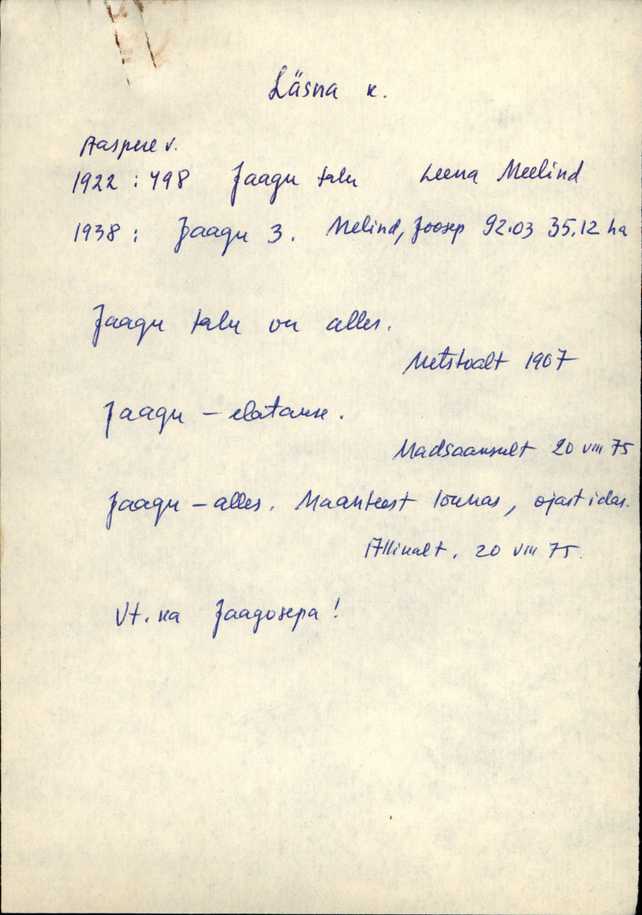 Läsna k.
Aaspere v.
1922 : 498 Jaagu talu Leena Meelind
1938 : Jaagu 3. Melind, Joosep 92.03 35.12 ha
Jaagu talu on alles.
Metstoalt 1967
Jaagu – elatakse.
Madsaansult 20 VIII 75
Jaagu – alles. Maanteest lõunas, ojast idas.
Allinalt. 20 VIII 75.
Vt. ka Jaagosepa!